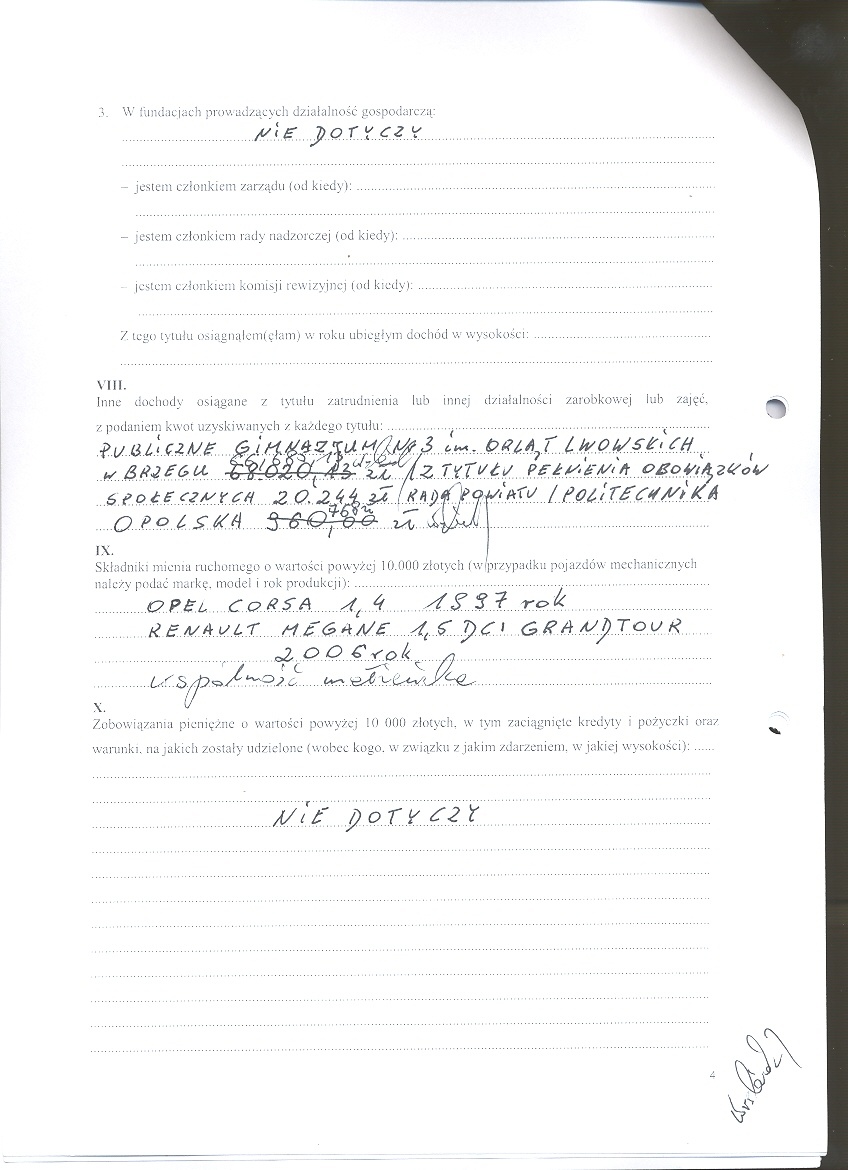 3. W fundacjach prowadzących działalność gospodarczą:
NIE DOTYCZY
– jestem członkiem zarządu (od kiedy):
– jestem członkiem rady nadzorczej (od kiedy):
– jestem członkiem komisji rewizyjnej (od kiedy):
Z tego tytułu osiągnąłem(ęłam) w roku ubiegłym dochód w wysokości:
VIII.
Inne dochody osiągane z tytułu zatrudnienia lub innej działalności zarobkowej lub zajęć,
z podaniem kwot uzyskiwanych z każdego tytułu:
PUBLICZNE GIMNAZJUM NR 3 im. ORLĄT LWOWSKICH
W BRZEGU 68020,13 zł /Z TYTUŁU PEŁNIENIA OBOWIĄZKÓW
SPOŁECZNYCH 20.244 zł /RADA POWIATU / POLITECHNIKA
768
OPOLSKA 960,00 zł
IX.
Składniki mienia ruchomego o wartości powyżej 10.000 złotych (w przypadku pojazdów mechanicznych
należy podać markę, model i rok produkcji):
OPEL CORSA 1,4 1997 rok
RENAULT MEGANE 1,5 DCI GRANDTOUR
2006 rok
wspólność małżeńska
X.
Zobowiązania pieniężne o wartości powyżej 10 000 złotych, w tym zaciągnięte kredyty i pożyczki oraz
warunki, na jakich zostały udzielone (wobec kogo, w związku z jakim zdarzeniem, w jakiej wysokości):
NIE DOTYCZY
4